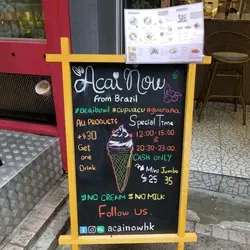 Acai Now
from Brazil
#acaibowl #cupuacu #guarana
ALL PRODUCTS
+$30
Get
one
Drink
Special Time
12:00-15:00
&
20:30-23:00
CASH ONLY
Mini Jumbo
$25 35
#NO CREAM #NO MILK
Follow us.
acainowhk